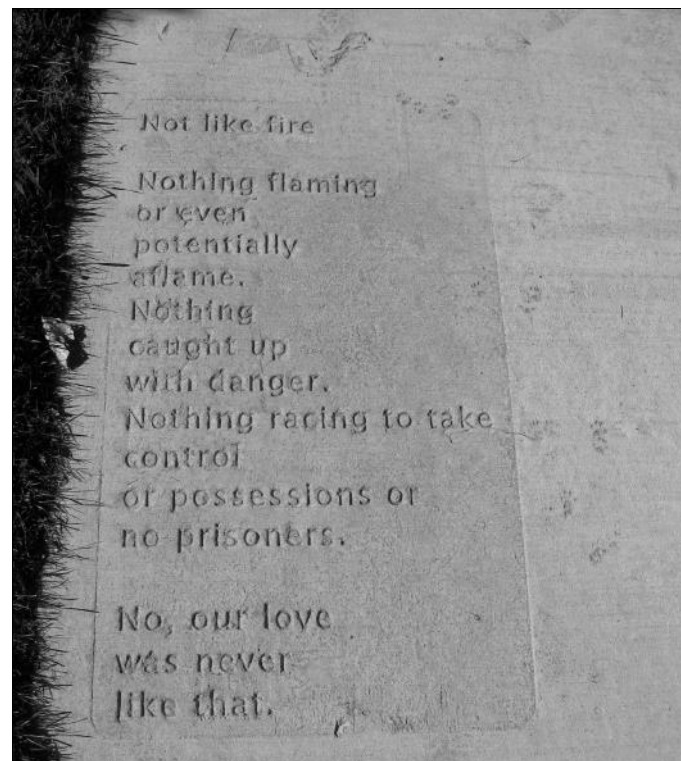 Not like fire
Nothing flaming
or even
potentially
aflame.
Nothing
caught up
with danger.
Nothing racing to take
control
or possessions or
no prisoners.
No, our love
was never
like that.